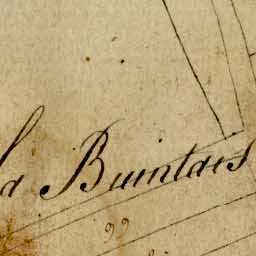 la Buintaes
99